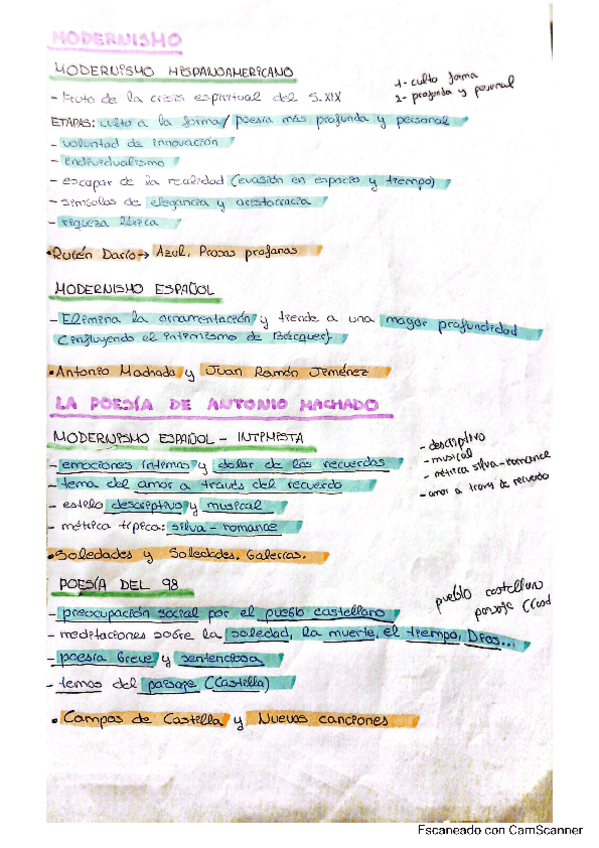 MODERNISMO
MODERNISMO HISPANOAMERICANO
1- culto forma
2- profunda y personal
- Fruto de la crisis espiritual del S.XIX
ETAPAS: culto a la forma / poesía más profunda y personal
- voluntad de innovación
- individualismo
- escapar de la realidad (evasión en espacio y tiempo)
- símbolos de elegancia y aristocracia
- riqueza léxica
• Rubén Darío → Azul, Prosas profanas
MODERNISMO ESPAÑOL
- Elimina la ornamentación y tiende a una mayor profundidad
(influyendo el intimismo de Bécquer).
• Antonio Machado y Juan Ramón Jiménez
LA POESÍA DE ANTONIO MACHADO
MODERNISMO ESPAÑOL - INTIMISTA
- descriptivo
- musical
- métrica silva-romance
- amor a través de recuerdo
- emociones íntimas y dolor de los recuerdos
- tema del amor a través del recuerdo
- estilo descriptivo y musical
- métrica típica: silva - romance
• Soledades y Soledades. Galerías.
POESÍA DEL 98
pueblo castellano
paisaje
- preocupación social por el pueblo castellano
- meditaciones sobre la soledad, la muerte, el tiempo, Dios...
- poesía breve y sentenciosa
- temas del paisaje (Castilla)
• Campos de Castilla y Nuevas canciones
Escaneado con CamScanner